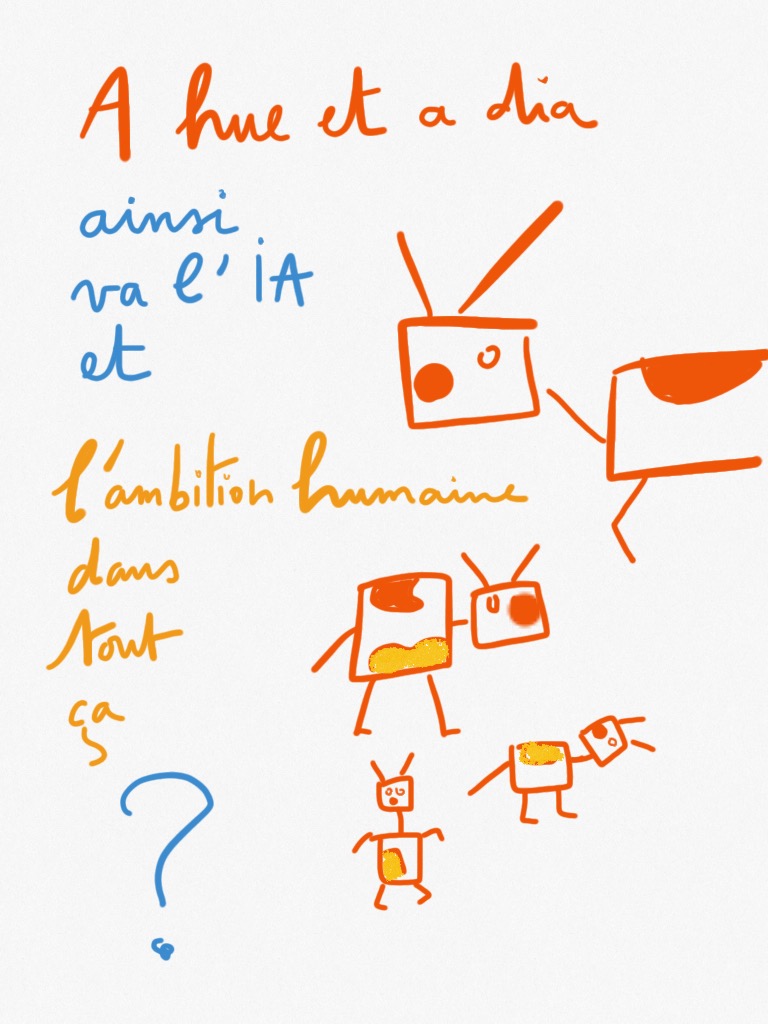 A hue et a dia
ainsi
va l'IA
et
l'ambition humaine
dans
tout
ça
?